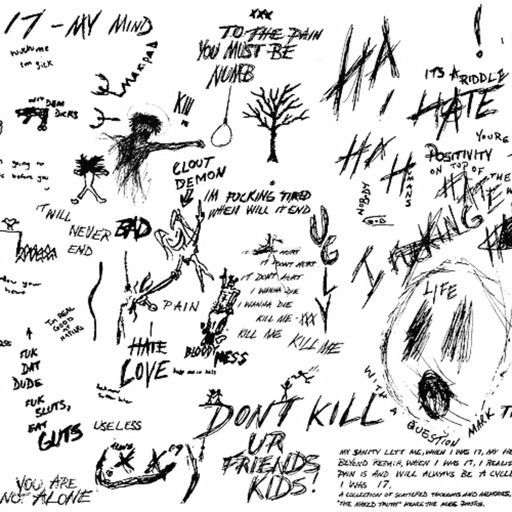 17 - MY MIND
XXX
TO THE PAIN
YOU MUST BE
NUMB
im sick
KILL
CLOUT
DEMON
IM FUCKING TIRED
WHEN WILL IT END
IT WILL
NEVER
END
BAD
PAIN
UGLY
IT DONT HURT
IT DONT HURT
I WANNA DIE
I WANNA DIE
KILL ME XXX
KILL ME
KILL ME
HATE
LOVE
BLOODY
MESS
FUK
DAT
DUDE
FUK
SLUTS,
EAT
GUTS
USELESS
YOU ARE
NOT ALONE
DON'T KILL
UR
FRIENDS
KIDS!
HA
HA
!
ITS A RIDDLE
HATE
YOURE
POSITIVITY
ON TOP OF THE
HUMANS
NOBODY
GOD
I FUCKING
LIFE
WITH A QUESTION MARK
MY SANITY LEFT ME, WHEN I WAS 17, MY HE
BEYOND REPAIR, WHEN I WAS 17, I REALIZ
PAIN IS AND WILL ALWAYS BE A CYCLE
I WAS 17.
A COLLECTION OF SCATTERED THOUGHTS AND MEMORIES,
"THE NAKED TRUTH"